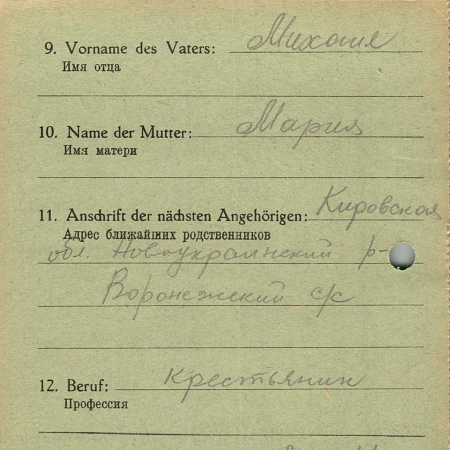 9. Vorname des Vaters: Михаил
Имя отца
10. Name der Mutter: Мария
Имя матери
11. Anschrift der nächsten Angehörigen: Кировская
Адрес ближайших родственников
обл. Новоукраинский р-
Воронежский с/с
12. Beruf: крестьянин
Профессия